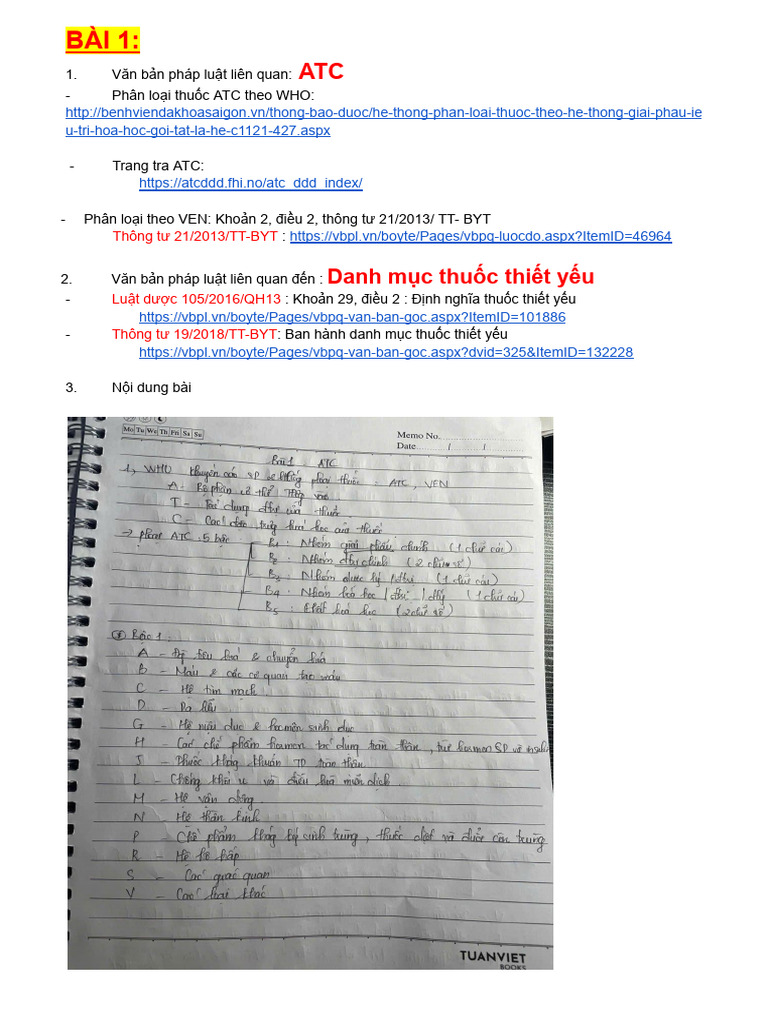 BÀI 1:
1. Văn bản pháp luật liên quan: ATC
- Phân loại thuốc ATC theo WHO:
http://benhviendakhoasaigon.vn/thong-bao-duoc/he-thong-phan-loai-thuoc-theo-he-thong-giai-phau-ie
u-tri-hoa-hoc-goi-tat-la-he-c1121-427.aspx
- Trang tra ATC:
https://atcddd.fhi.no/atc_ddd_index/
- Phân loại theo VEN: Khoản 2, điều 2, thông tư 21/2013/ TT- BYT
Thông tư 21/2013/TT-BYT : https://vbpl.vn/boyte/Pages/vbpq-luocdo.aspx?ItemID=46964
2. Văn bản pháp luật liên quan đến : Danh mục thuốc thiết yếu
- Luật dược 105/2016/QH13 : Khoản 29, điều 2 : Định nghĩa thuốc thiết yếu
https://vbpl.vn/boyte/Pages/vbpq-van-ban-goc.aspx?ItemID=101886
- Thông tư 19/2018/TT-BYT: Ban hành danh mục thuốc thiết yếu
https://vbpl.vn/boyte/Pages/vbpq-van-ban-goc.aspx?dvid=325&ItemID=132228
3. Nội dung bài
Mo Tu We Th Fri Sa Su
Memo No.
Date / /
Bài 1 ATC
1, WHO khuyến cáo SD hệ thống phân thuốc : ATC, VEN
A - Bộ phận cơ thể
T - Tác dụng đtrị của thuốc
C - hoá học của thuốc
→ phân ATC : 5 bậc
B1 : Nhóm giải phẫu chính (1 chữ cái)
B2 : Nhóm đtrị chính (2 chữ số)
B3 : Nhóm dược lý đtrị (1 chữ cái)
B4 : Nhóm hoá học / đtrị / dlý (1 chữ cái)
B5 : Chất hoá học (2 chữ số)
Bậc 1 :
A - Hệ tiêu hoá & chuyển hoá
B - Máu & các cơ quan tạo máu
C - Hệ tim mạch
D - Da liễu
G - Hệ niệu dục & hormon sinh dục
H - Các chế phẩm hormon tác dụng toàn thân, trừ hormon SD và insulin
J - Thuốc kháng khuẩn TD toàn thân
L - Chống khối u và điều hoà miễn dịch
M - Hệ vận động
N - Hệ thần kinh
P - Chế phẩm kháng ký sinh trùng, thuốc diệt và đuổi côn trùng
R - Hệ hô hấp
S - Các giác quan
V - Các loại khác
TUANVIET
BOOKS